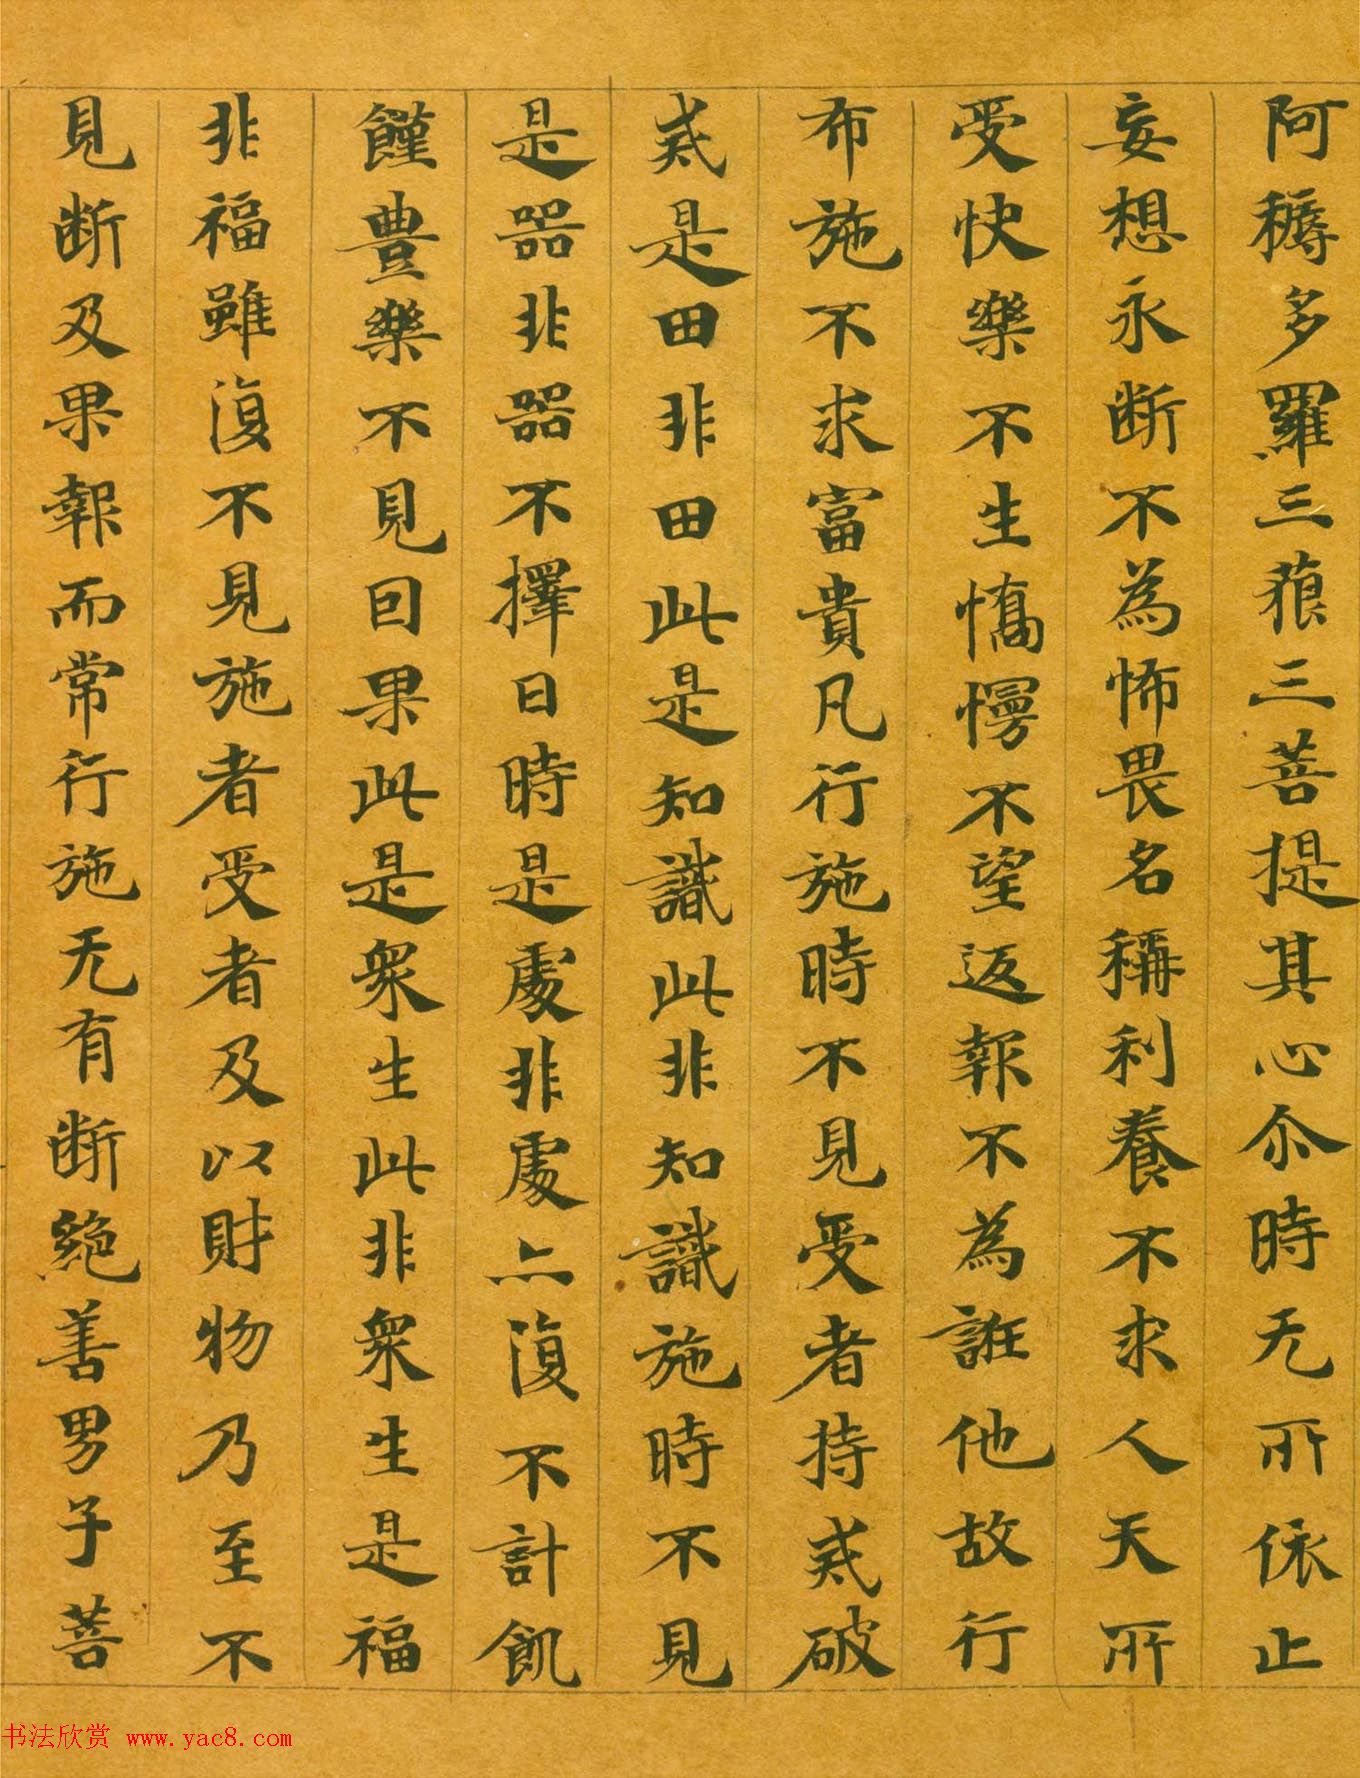 阿耨多羅三藐三菩提其心尒時无所依止
妄想永断不為怖畏名稱利養不求人天所
受快樂不生憍慢不望返報不為誑他故行
布施不求富貴凡行施時不見受者持戒破
戒是田非田此是知識此非知識施時不見
是器非器不擇日時是處非處亦復不計飢
饉豊樂不見因果此是衆生此非衆生是福
非福雖復不見施者受者及以財物乃至不
見断及果報而常行施无有断絕善男子菩
书法欣赏 www.yac8.com